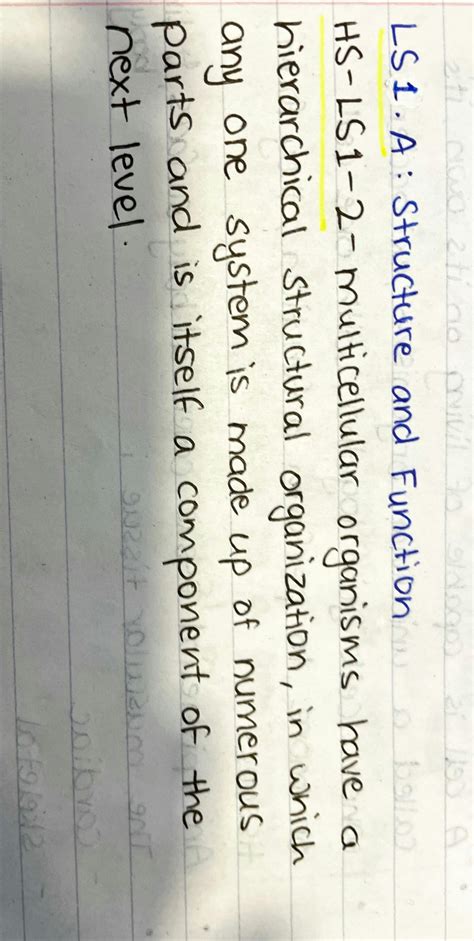 LS1.A: Structure and Function
HS-LS1-2- multicellular organisms have a
hierarchical structural organization, in which
any one system is made up of numerous
parts and is itself a component of the
next level.